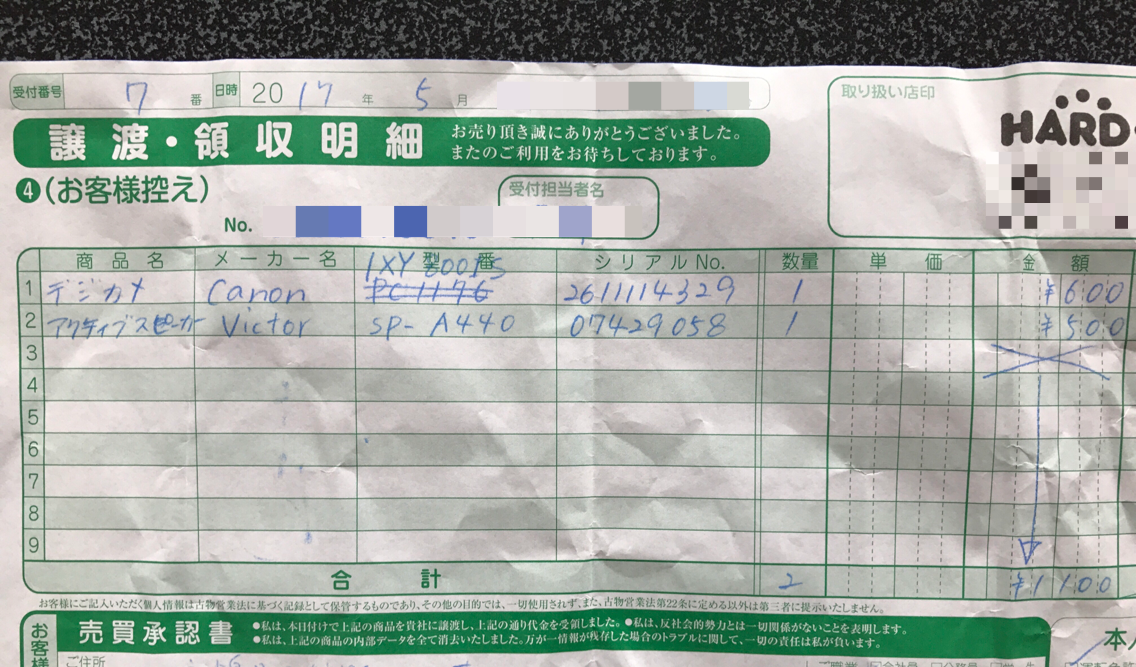 受付番号 7 番 日時 2017年 5月
取り扱い店印
HARD
譲渡・領収明細 お売り頂き誠にありがとうございました。
またのご利用をお待ちしております。
❹(お客様控え)
受付担当者名
No.
商品名 メーカー名 型番 シリアルNo. 数量 単価 金額
IXY 200IS
1 デジカメ Canon PC1176 2611114329 1 ¥600
2 アクティブスピーカー Victor SP-A440 07429058 1 ¥500
3
4
5
6
7
8
9
合計 2 ¥1100
お客様にご記入いただく個人情報は古物営業法に基づく記録として保管するものであり、その他の目的では、一切使用されず、また、古物営業法第22条に定める以外は第三者に提示いたしません。
お客様
売買承認書 ●私は、本日付けで上記の商品を貴社に譲渡し、上記の通り代金を受領しました。●私は、反社会的勢力とは一切関係がないことを表明します。
●私は、上記の商品の内部データを全て消去いたしました。万が一情報が残存した場合のトラブルに関して、一切の責任は私が負います。
本人
ご住所
ご職業 会社員 公務員